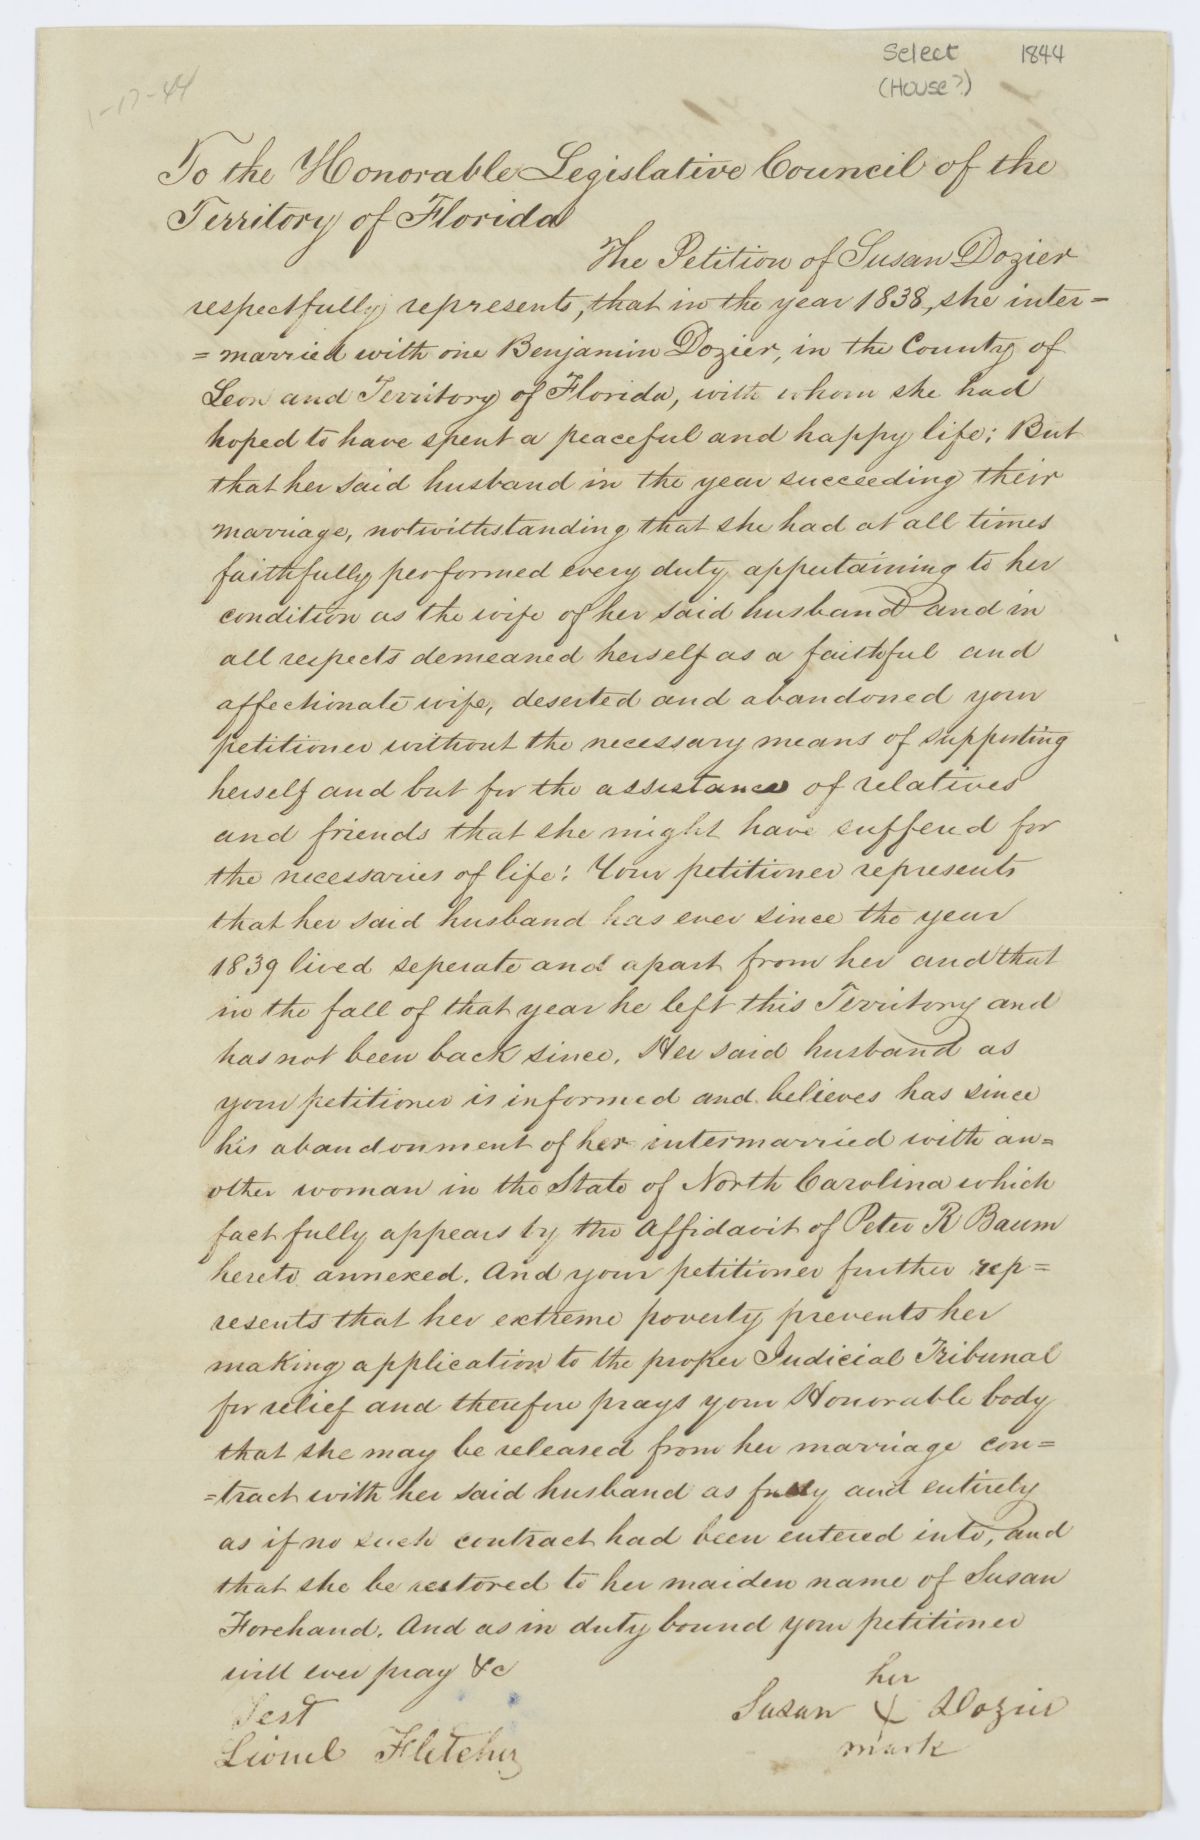 Select 1844
(House?)
1-17-44
To the Honorable Legislative Council of the
Territory of Florida
The Petition of Susan Dozier
respectfully represents, that in the year 1838, she inter=
=married with one Benjamin Dozier, in the County of
Leon and Territory of Florida, with whom she had
hoped to have spent a peaceful and happy life; But
that her said husband in the year succeeding their
marriage, notwithstanding that she had at all times
faithfully performed every duty appertaining to her
condition as the wife of her said husband and in
all respects demeaned herself as a faithful and
affectionate wife, deserted and abandoned your
petitioner without the necessary means of supporting
herself and but for the assistance of relatives
and friends that she might have suffered for
the necessaries of life: Your petitioner represents
that her said husband has ever since the year
1839 lived seperate and apart from her and that
in the fall of that year he left this Territory and
has not been back since. Her said husband as
your petitioner is informed and believes has since
his abandonment of her intermarried with an=
other woman in the State of North Carolina which
fact fully appears by the Affidavit of Peter R Baum
hereto annexed. And your petitioner further rep=
resents that her extreme poverty prevents her
making application to the proper Judicial Tribunal
for relief and therefore prays your Honorable body
that she may be released from her marriage con=
=tract with her said husband as fully and entirely
as if no such contract had been entered into, and
that she be restored to her maiden name of Susan
Forehand. And as in duty bound your petitioner
will ever pray &c
her
Test Susan X Dozier
Lionel Fletcher mark